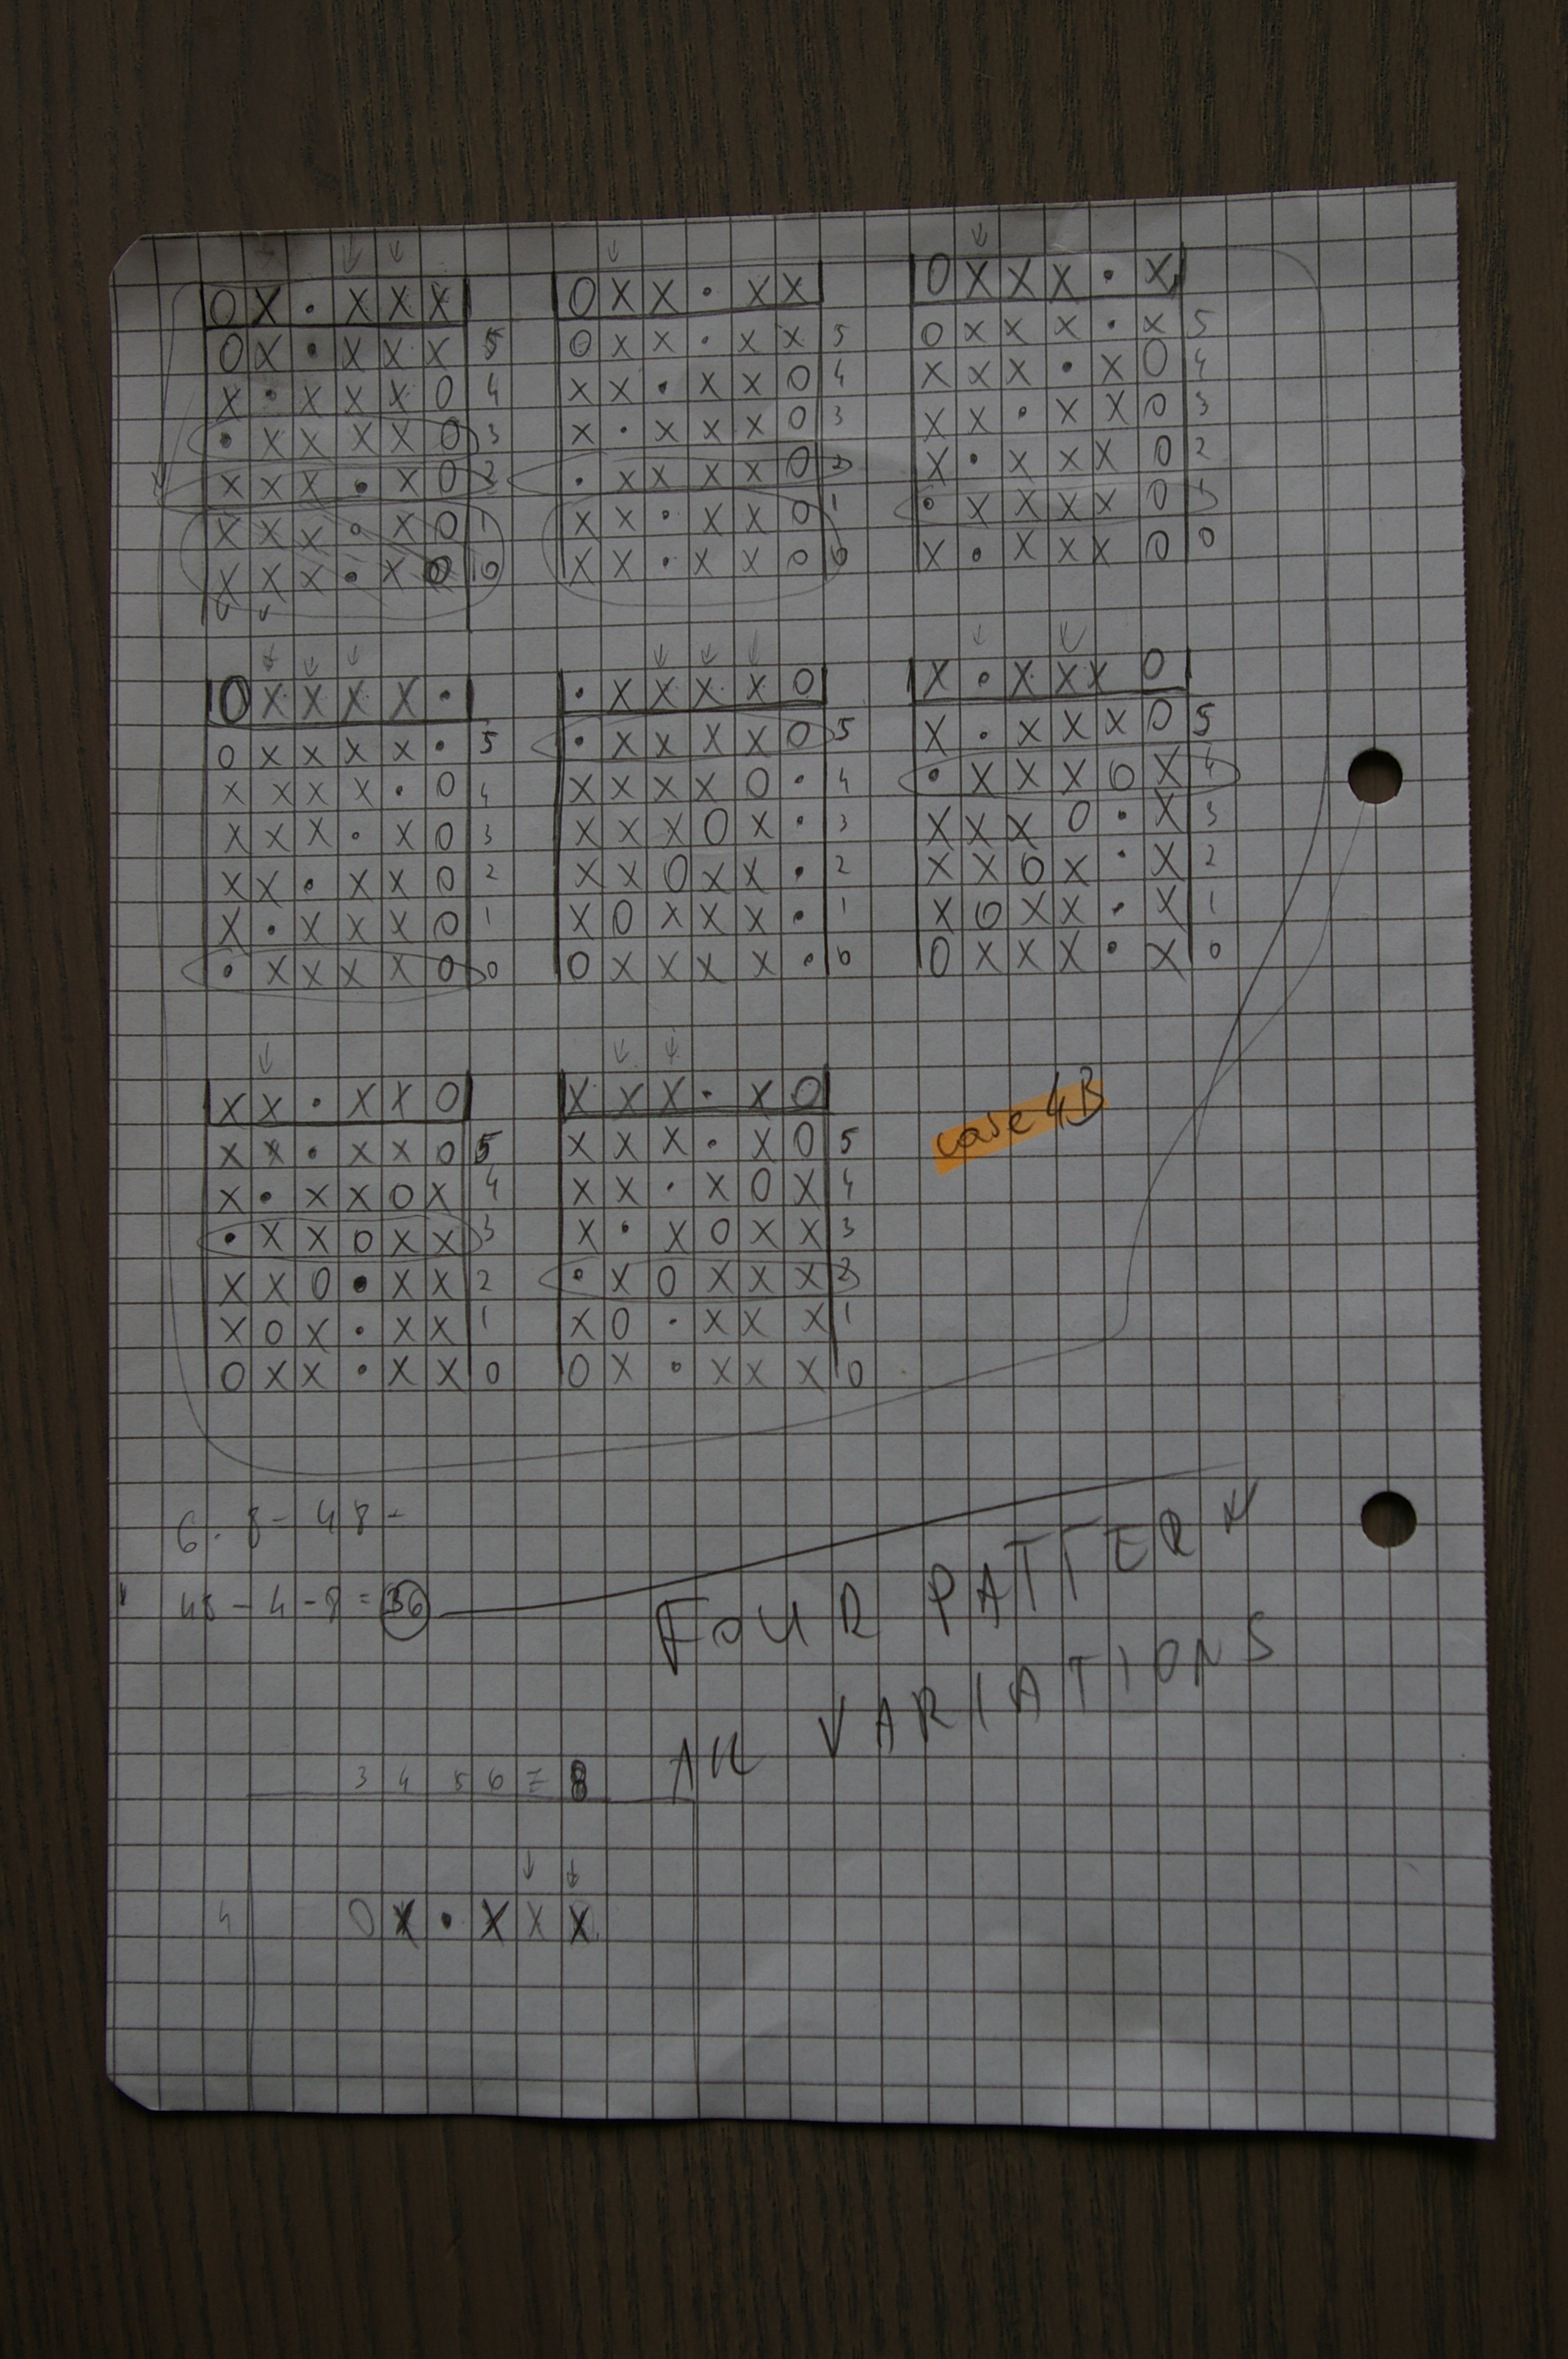 O X · X X X
O X · X X X 5
X · X X X O 4
· X X X X O 3
X X X · X O 2
X X X · X O 1
X X X · X O 0
O X X · X X
O X X · X X 5
X X · X X O 4
X · X X X O 3
· X X X X O 2
X X · X X O 1
X X · X X O 0
O X X X · X
O X X X · X 5
X X X · X O 4
X X · X X O 3
X · X X X O 2
· X X X X O 1
X · X X X O 0
O X X X X ·
O X X X X · 5
X X X X · O 4
X X X · X O 3
X X · X X O 2
X · X X X O 1
· X X X X O 0
· X X X X O
· X X X X O 5
X X X X O · 4
X X X O X · 3
X X O X X · 2
X O X X X · 1
O X X X X · 0
X · X X X O
X · X X X O 5
· X X X O X 4
X X X O · X 3
X X O X · X 2
X O X X · X 1
O X X X · X 0
X X · X X O
X X · X X O 5
X · X X O X 4
· X X O X X 3
X X O · X X 2
X O X · X X 1
O X X · X X 0
X X X · X O
X X X · X O 5
X X · X O X 4
X · X O X X 3
· X O X X X 2
X O · X X X 1
O X · X X X 0
case 4B
6 · 8 = 48 -
48 - 4 - 8 = 36
FOUR PATTERN
All VARIATIONS
3 4 5 6 7 8
4 O X · X X X